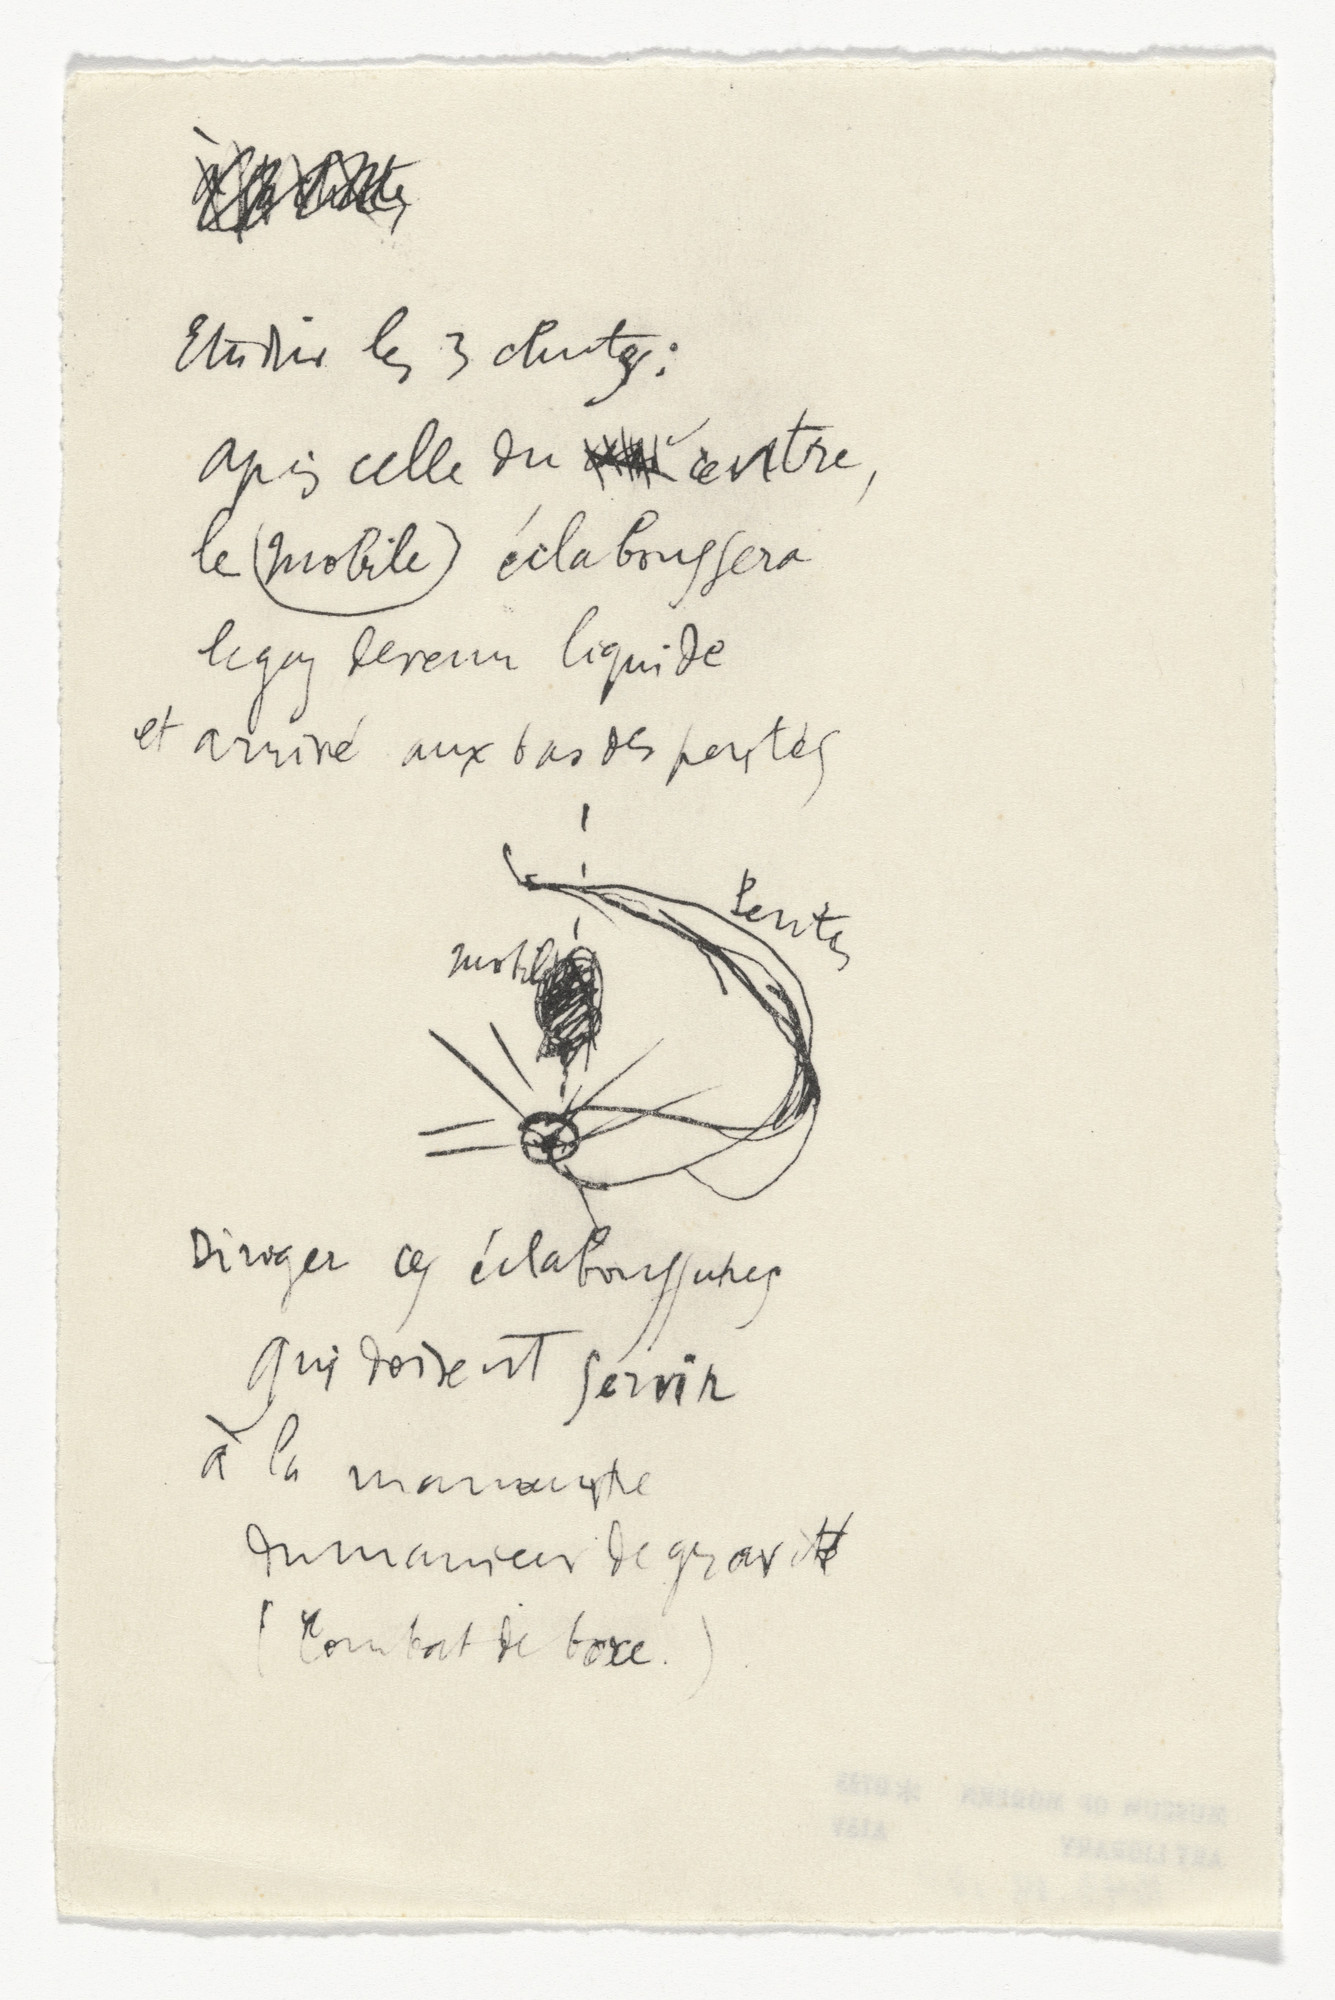 Etudier les 3 chutes :
après celle du centre,
le (mobile) éclaboussera
le gaz devenu liquide
et arrivé aux bas des pentes
Pentes
mobile
Diriger ces éclaboussures
qui doivent servir
à la manœuvre
du manieur de gravité
(Combat de boxe.)
MUSEUM OF MODERN
ART LIBRARY